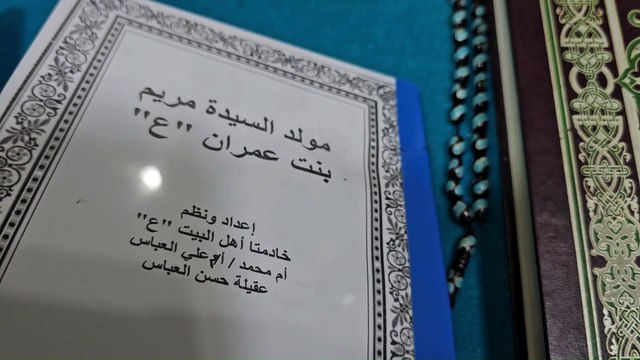 مولد السيدة مريم
بنت عمران "ع"
إعداد ونظم
خادمتا أهل البيت "ع"
أم محمد / أم علي العباس
عقيلة حسن العباس